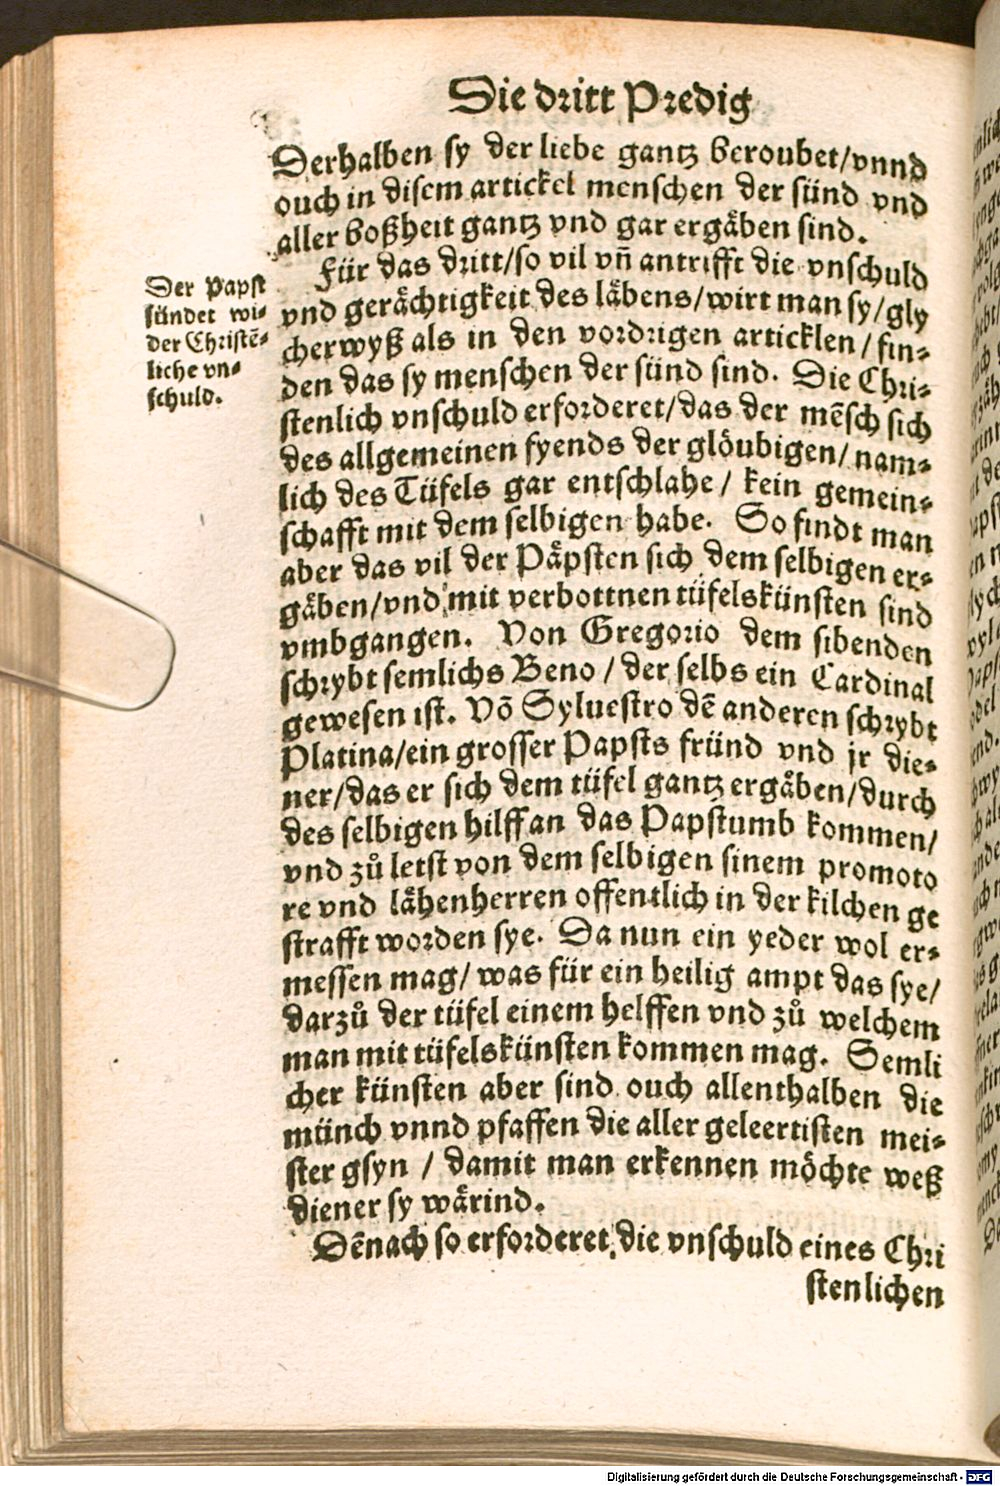 Die dritt Predig
Derhalben sy der liebe gantz beroubet/vnnd
ouch in disem artickel menschen der sünd vnd
aller boßheit gantz vnd gar ergåben sind.
Für das dritt/so vil vn̄ antrifft die vnschuld
vnd gerächtigkeit des låbens/wirt man sy/gly
cherwyß als in den vordrigen articklen/fin⸗
den das sy menschen der sünd sind. Die Chri⸗
stenlich vnschuld erforderet/das der mēsch sich
des allgemeinen fyends der glöubigen/nam⸗
lich des Tüfels gar entschlahe/ kein gemein⸗
schafft mit dem selbigen habe. So findt man
aber das vil der Påpsten sich dem selbigen er⸗
gåben/vnd mit verbottnen tüfelskünsten sind
vmbgangen. Von Gregorio dem sibenden
schrybt semlichs Beno/der selbs ein Cardinal
gewesen ist. Võ Syluestro dē anderen schrybt
Platina/ein grosser Papsts fründ vnd jr die⸗
ner/das er sich dem tüfel gantz ergåben/durch
des selbigen hilff an das Papstumb kommen/
vnd zů letst von dem selbigen sinem promoto
re vnd låhenherren offentlich in der kilchen ge
strafft worden sye. Da nun ein yeder wol er⸗
messen mag/ was für ein heilig ampt das sye/
darzů der tüfel einem helffen vnd zů welchem
man mit tüfelskünsten kommen mag. Semli
cher künsten aber sind ouch allenthalben die
münch vnnd pfaffen die aller geleertisten mei⸗
ster gsyn / damit man erkennen möchte weß
diener sy wårind.
Dēnach so erforderet die vnschuld eines Chri
stenlichen
Der Papst
sündet wi⸗
der Christē⸗
liche vn⸗
schuld.
Digitalisierung gefördert durch die Deutsche Forschungsgemeinschaft - DFG